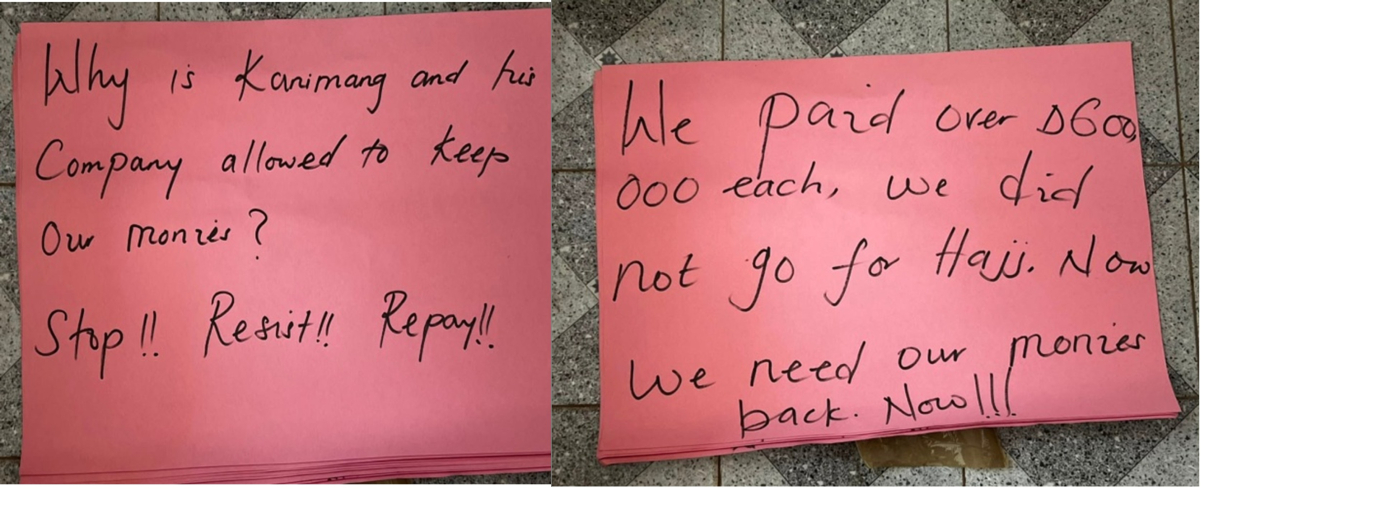 Why is Kanimang and his
Company allowed to keep
Our monies?
Stop!! Resist!! Repay!!
We paid over D600,
000 each, we did
not go for Hajj. Now
We need our monies
back. Now!!!